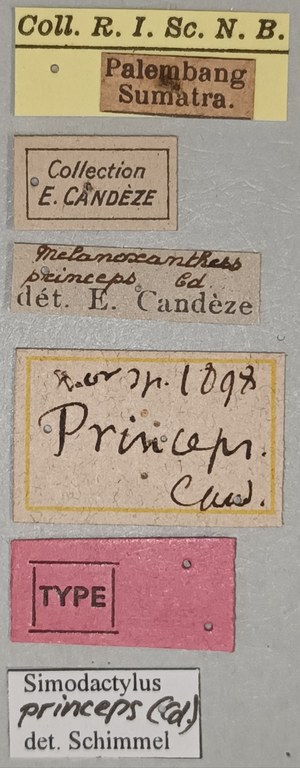 Coll. R. I. Sc. N. B.
Palembang
Sumatra.
Collection
E. CANDÈZE
Melanoxanthus
princeps. Cd.
dét. E. Candèze
sp. 1898
Princeps.
Cand.
TYPE
Simodactylus
princeps (Cd.)
det. Schimmel